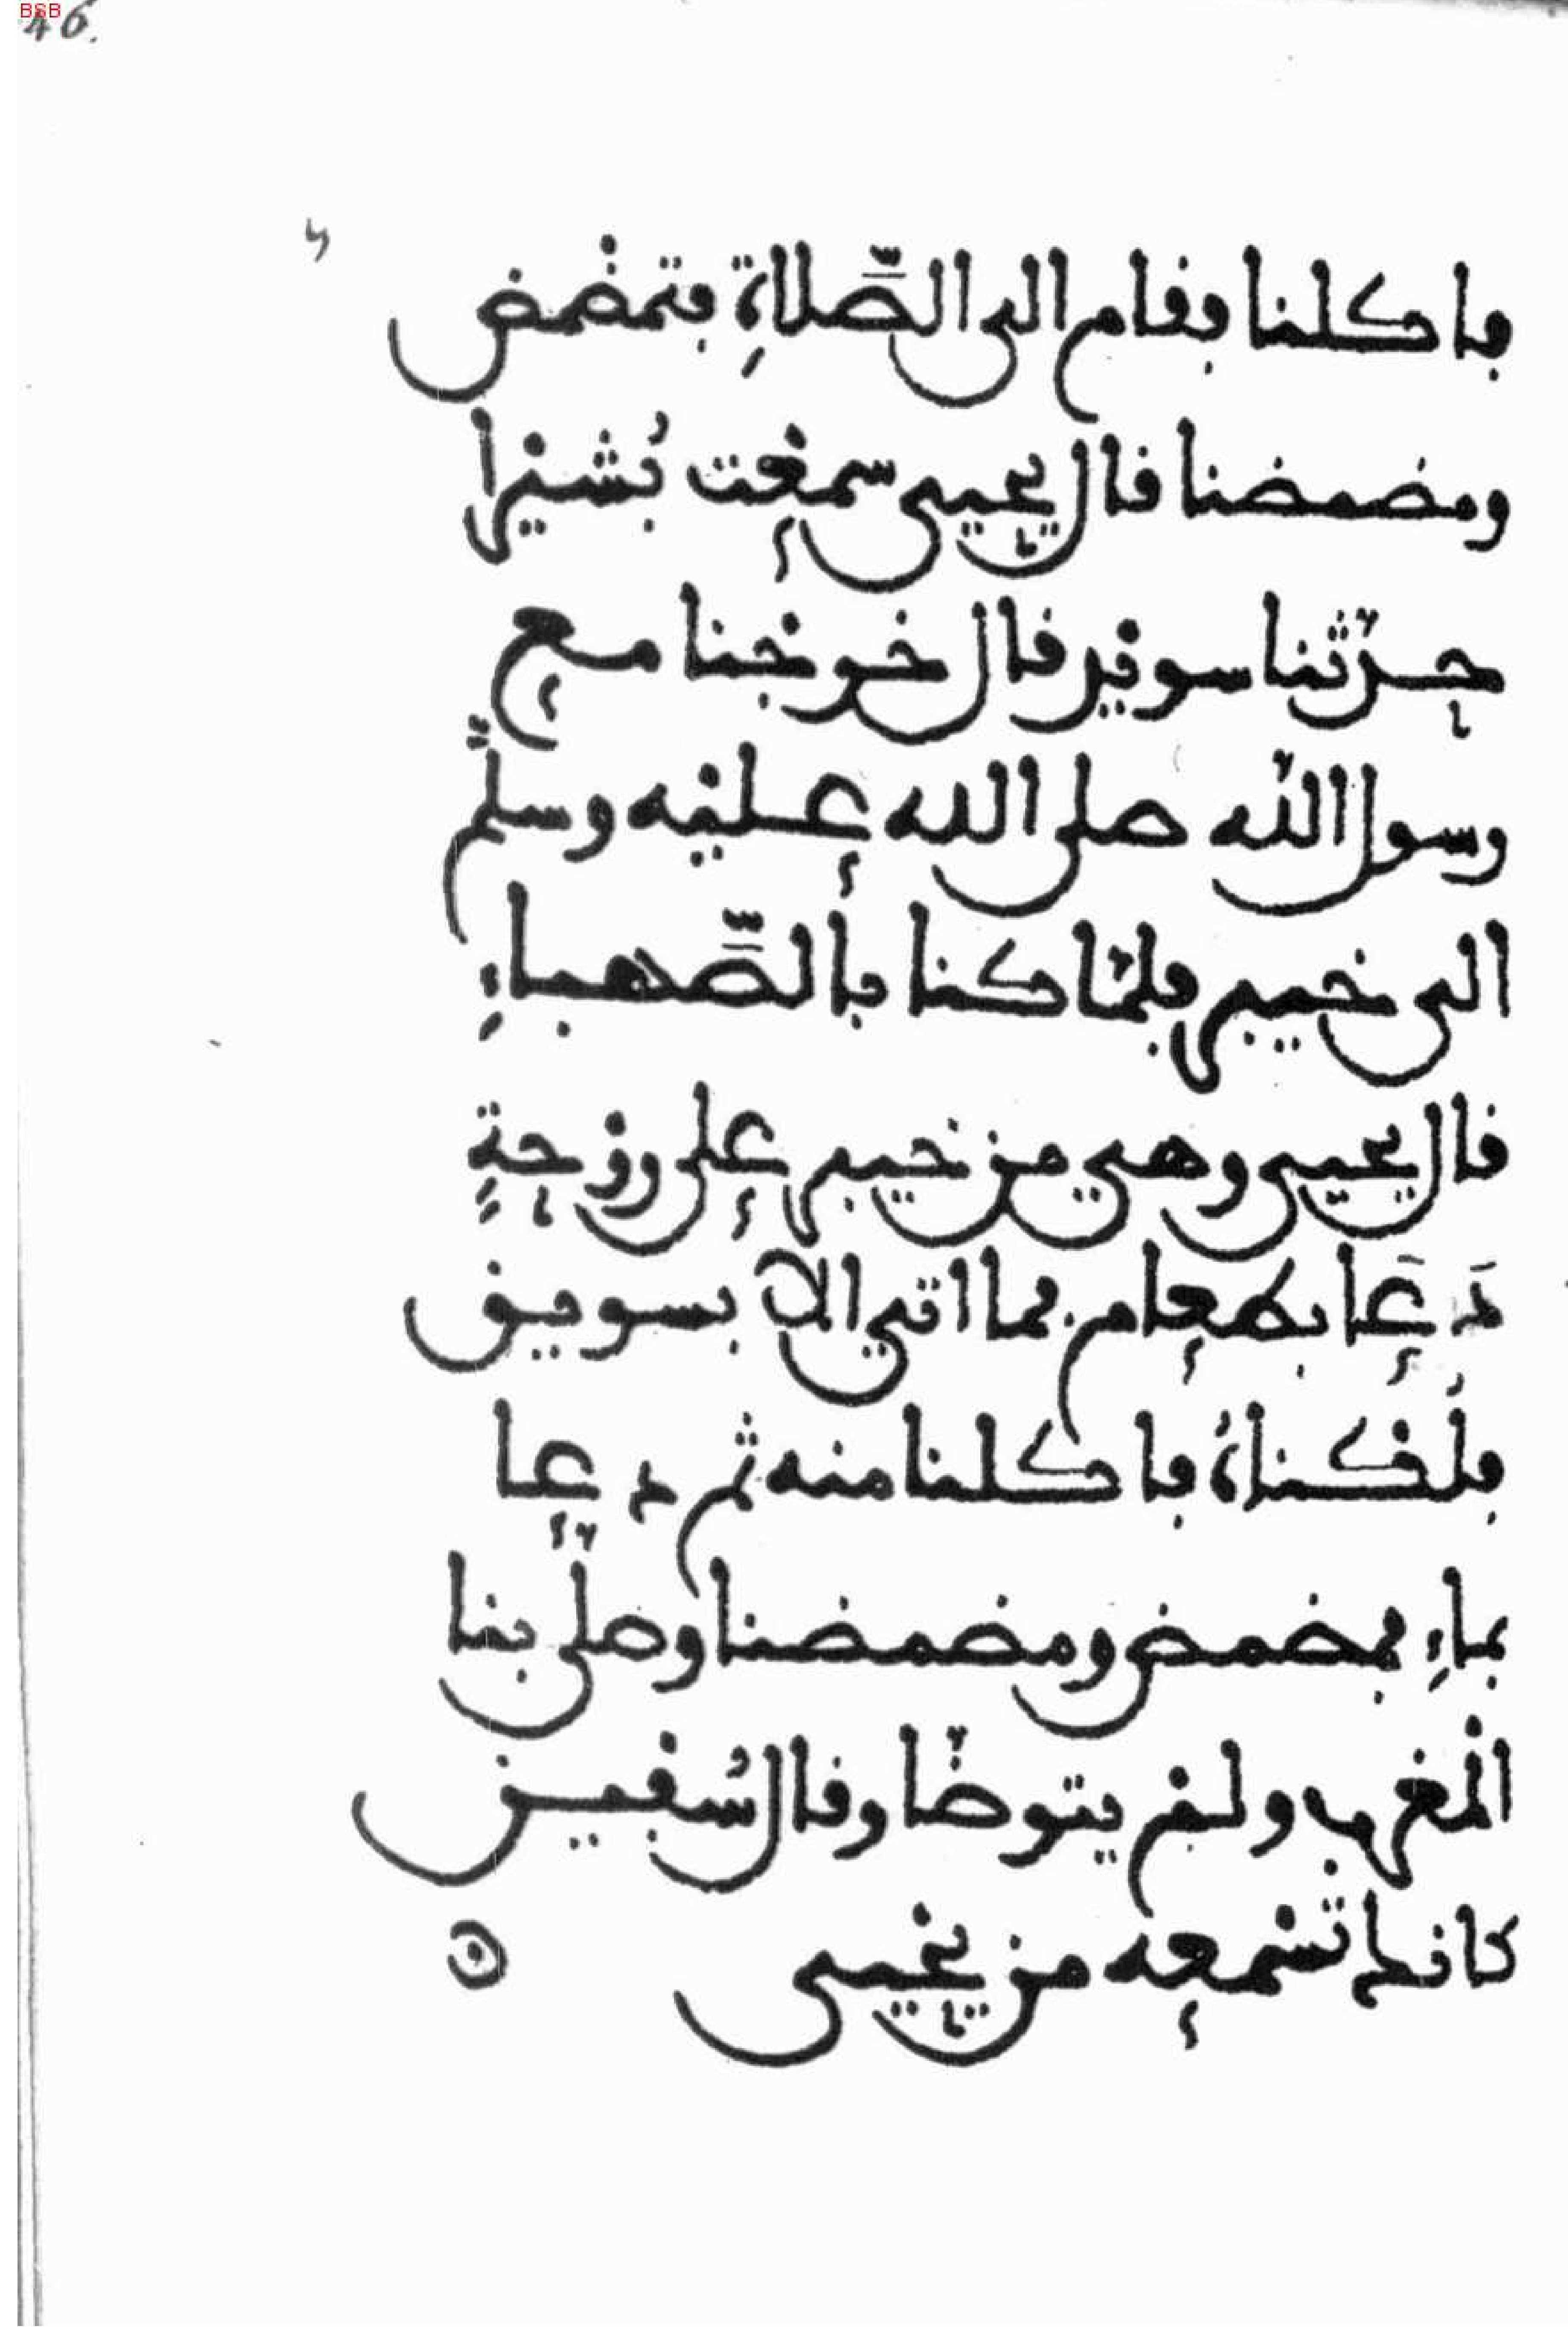 46.
BSB
فاكلنا فقام الى الصّلاةِ فتمضْمض
ومضمضنا قال يحيى سمعْت بُشيْرا
حدّثنا سويْد قال خرجْنا مع
رسول اللّه صلى الله عليْه وسلّم
الى خيبر فلمّا كنا بالصّهباءِ
قال يحيى وهي من خيبر على روْحةٍ
دَعَا بطعام فما اتي الا بسويق
فلُكْناهُ فاكلنا منه ثم دعا
بماءِ فمضمض ومضمضنا وصلّى بنا
الْمغرب ولمْ يتوضّا وقال سُفْين
كانك تسْمعه من يحْيى